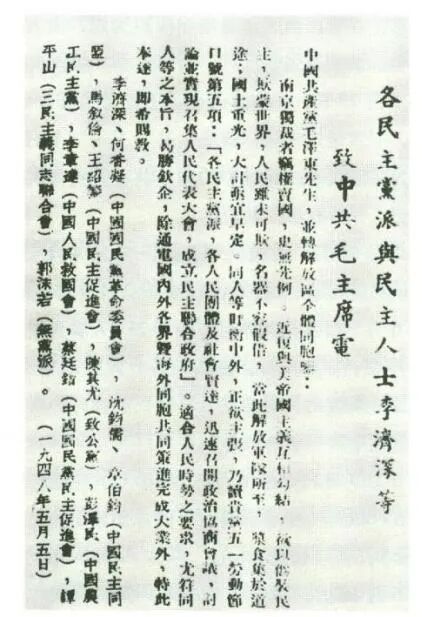 各民主黨派與民主人士李濟深等
致中共毛主席電
中國共產黨毛澤東先生,並轉解放區全體同胞鑒:
南京獨裁者竊權賣國,史無先例。近復與美帝國主義互相勾結,欲以僞裝民
主,欺蒙世界,人民雖未可欺,名器不容假借,當此解放軍隊所至,簞食集於道
途;國土重光,大計亟宜早定。同人等盱衡中外,正欲主張,乃讀貴黨五一勞動節
口號第五項:「各民主黨派,各人民團體及社會賢達,迅速召開政治協商會議,討
論並實現召集人民代表大會,成立民主聯合政府」。適合人民時勢之要求,尤符同
人等之本旨,曷勝欽企,除通電國內外各界暨海外同胞共同策進完成大業外,特此
本達,即希賜教。
李濟深、何香凝(中國國民黨革命委員會),沈鈞儒、章伯鈞(中國民主同
盟),馬叙倫、王紹鏊(中國民主促進會),陳其尤(致公黨),彭澤民(中國農
工民主黨),李章達(中國人民救國會),蔡廷鍇(中國國民黨民主促進會),譚
平山(三民主義同志聯合會),郭沫若(無黨派)。(一九四八年五月五日)